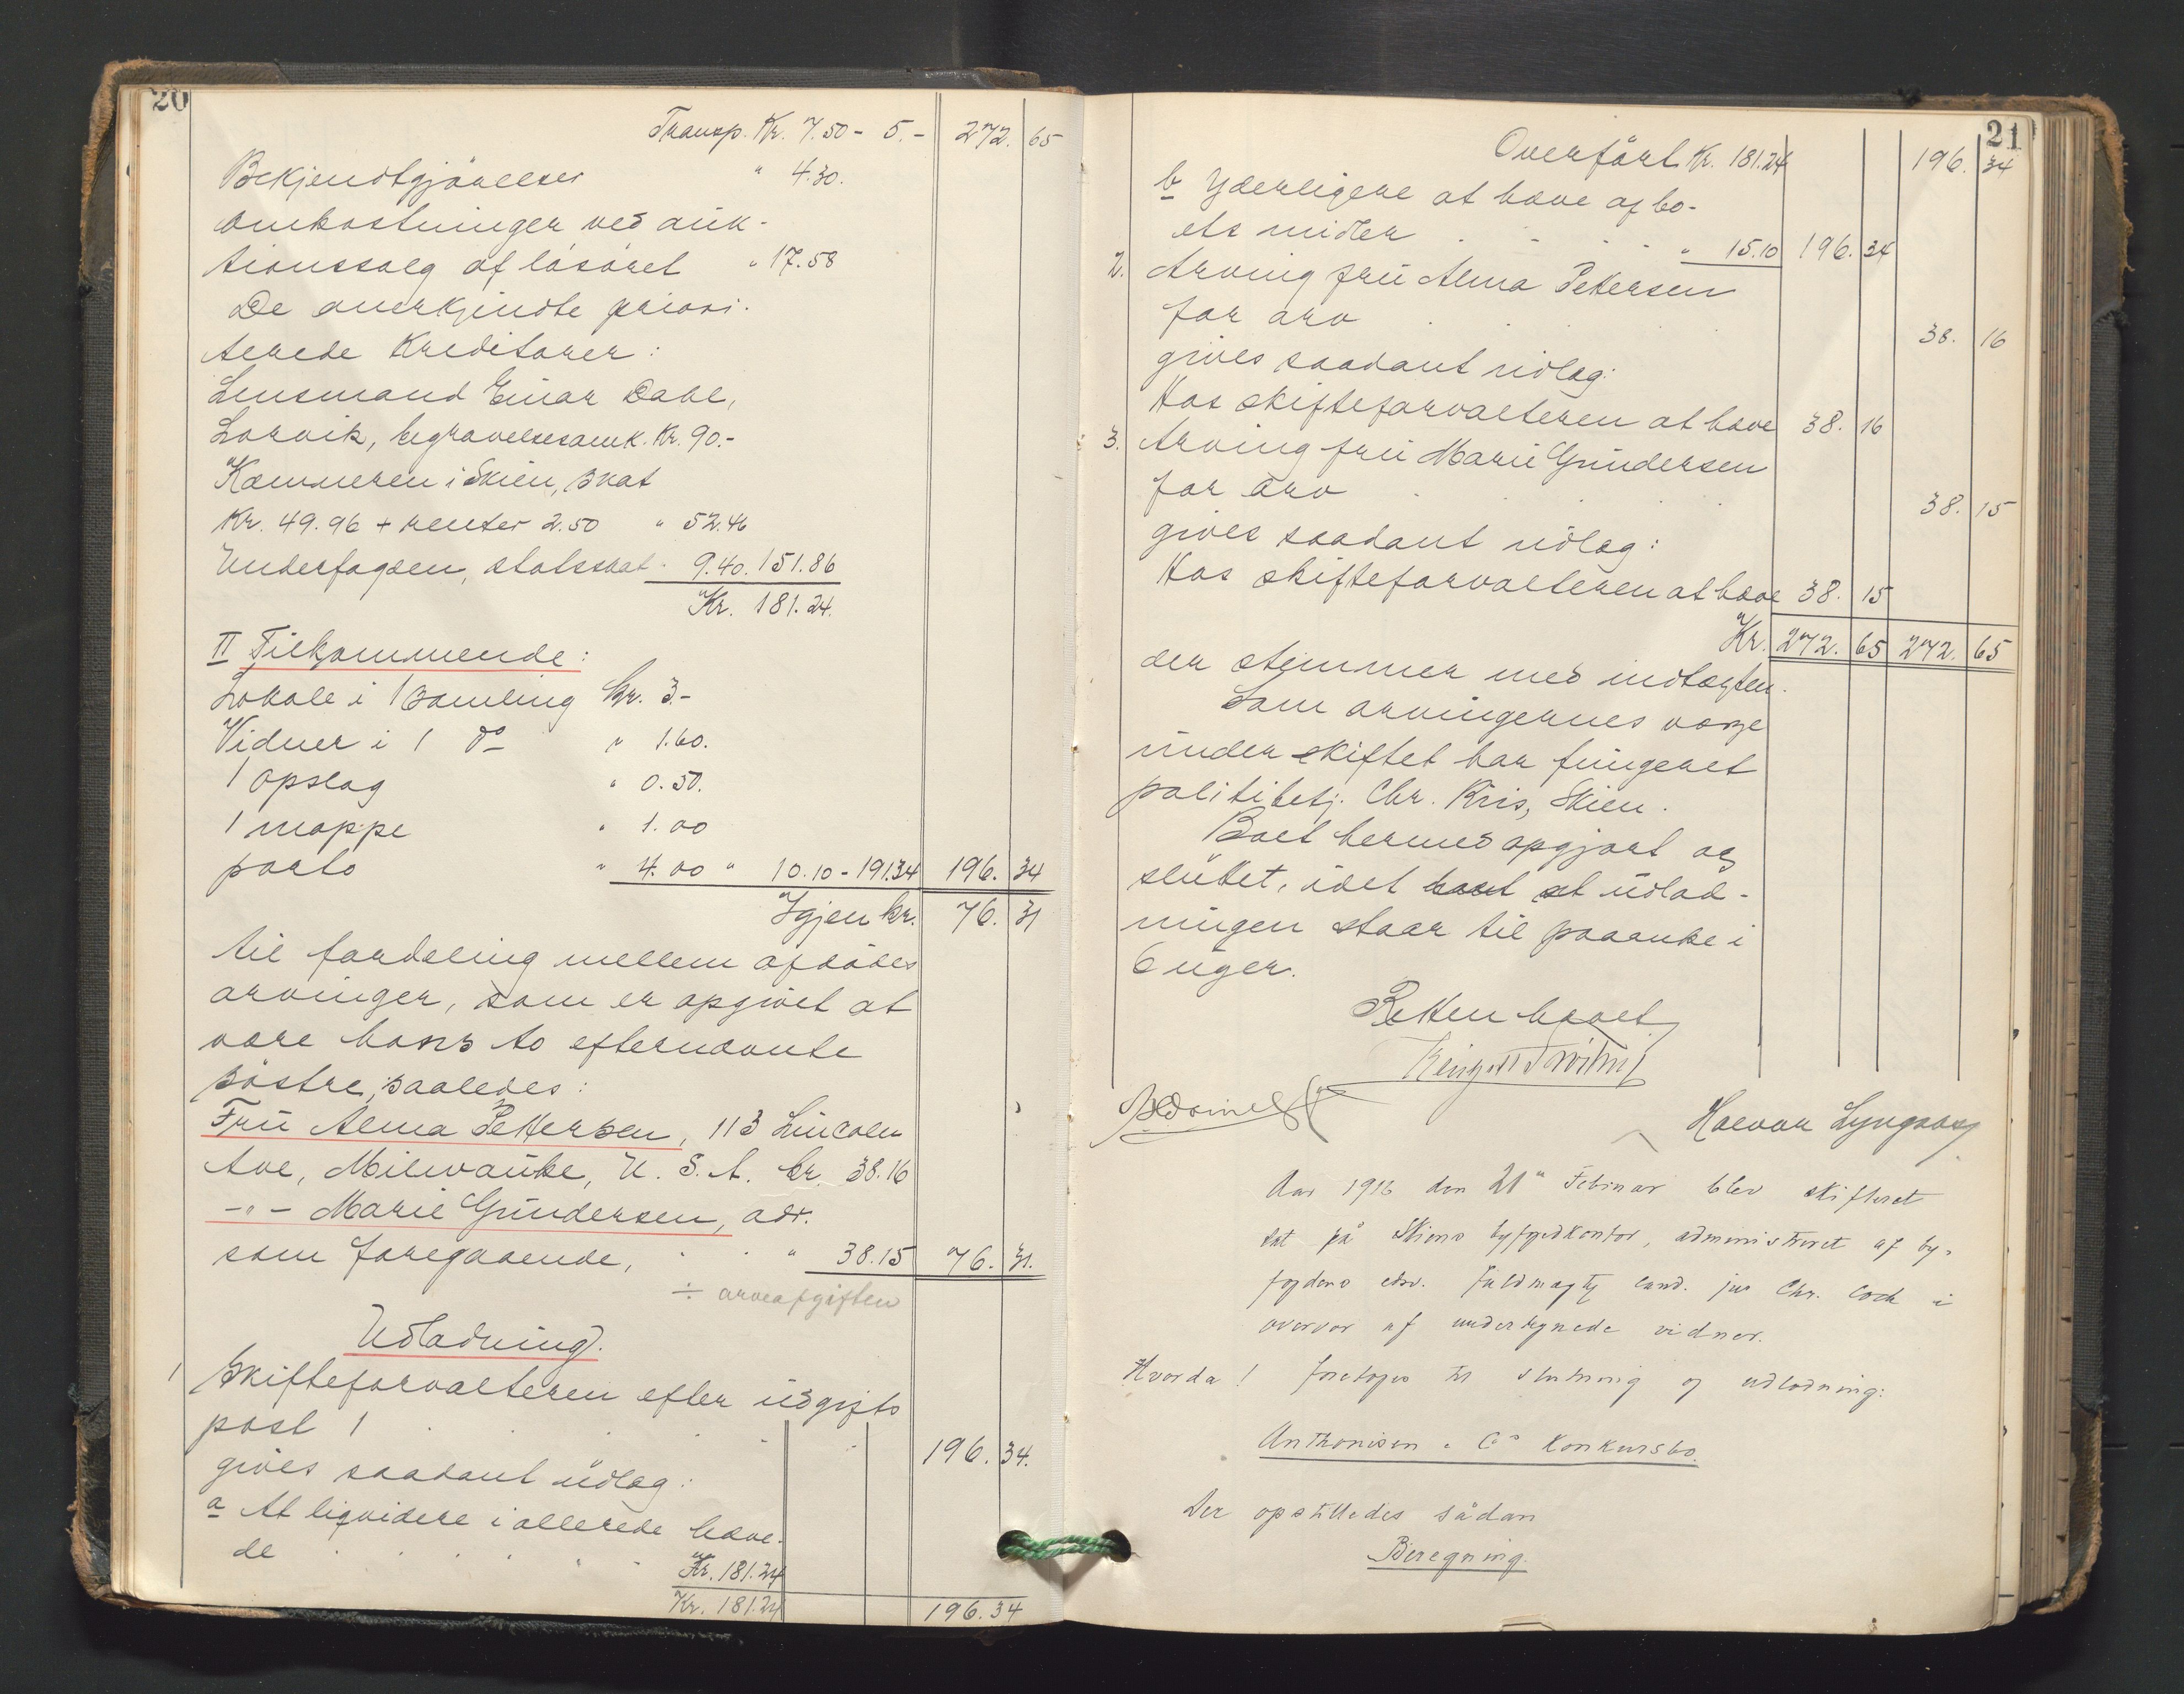 20
Transp. Kr. 7.50 - 5.- 272. 65
Bekjendtgjörelser " 4.30.
Omkostninger ved auk-
tionssalg af lösöret " 17.58
De anerkjendte priori-
terede Kreditorer:
Lensmand Einar Dahl,
Larvik, begravelsesomk. Kr. 90.-
Kæmneren i Skien, skat
Kr. 49.96 + renter 2.50 " 52.46
Underfogden, statsskat " 9.40. 151.86
Kr. 181.24.
II Tilkommende:
Lokale i 1 samling kr. 3.-
Vidner i 1 do " 1.60.
1 opslag " 0.50.
1 mappe " 1.00
porto " 4.00 " 10.10 - 191.34 196. 34
Igjen kr. 76. 31
til fordeling mellem afdödes
arvinger, som er opgivet at
være hans to efternævnte
söstre, saaledes:
Fru Alma Pettersen, 113 Lincoln
Ave, Milwauke, U. S. A. kr. 38.16
-"- Marie Gundersen, adr.
som foregaaende, " 38.15 76. 31.
÷ arveafgiften
Udlodning.
1 Skifteforvalteren efter udgifts
post 1 196. 34.
gives saadant udlæg:
a At liqvidere i allerede hæve-
de Kr. 181.24
Kr. 181.24 196.34
21
Overfört Kr. 181.24 196. 34
b Yderligere at hæve af bo-
ets midler " 15.10 196. 34
2. Arving fru Alma Petersen
for arv 38. 16
gives saadant udlæg:
Hos skifteforvalteren at hæve 38. 16
3. Arving fru Marie Gundersen
for arv 38. 15
gives saadant udlæg:
Hos skifteforvalteren at hæve 38. 15
Kr. 272. 65 272. 65
der stemmer med indtægten.
Som arvingernes værge
under skiftet har fungeret
politibetj. Chr. Kris, Skien.
Boet hermed opgjort og
sluttet, idet at udlod-
ningen staar til paaanke i
6 uger.
Retten hævet
Halvor Lyngaas
Aar 1913 den 21de Februar blev skifteret
sat på Skiens byfogedkontor, administreret af by-
fogdens edsv. fuldmægtig cand. jur Chr. Cock i
overvær af undertegnede vidner.
Hvorda! foretoges til slutning og udlodning:
Anthonisen & Co Konkursbo.
Der opstilledes sådan
Beregning.